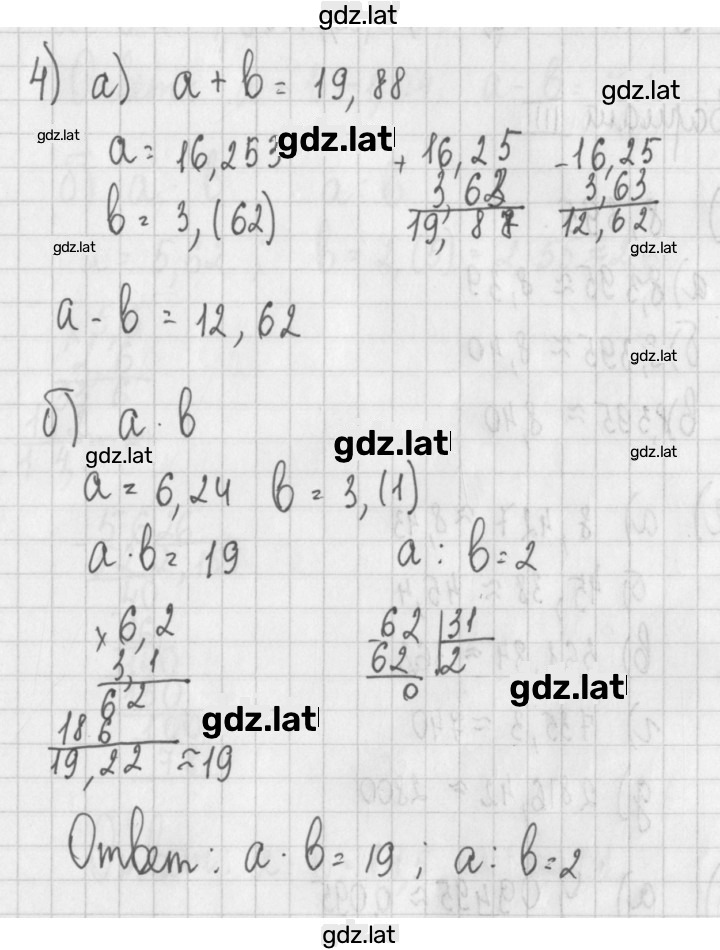 gdz.lat
4) а) a + b = 19,88
gdz.lat
gdz.lat a = 16,253 gdz.lat + 16,25 - 16,25
b = 3,(62) 3,63 3,63
19,88 12,62
gdz.lat gdz.lat
a - b = 12,62
gdz.lat
б) a · b
gdz.lat gdz.lat gdz.lat
a = 6,24 b = 3,(1)
a · b = 19 a : b = 2
× 6,2 - 62 | 31
3,1 62 | 2
62 0 gdz.lat
186 gdz.lat
19,22 ≈ 19
Ответ: a · b = 19; a : b = 2
gdz.lat